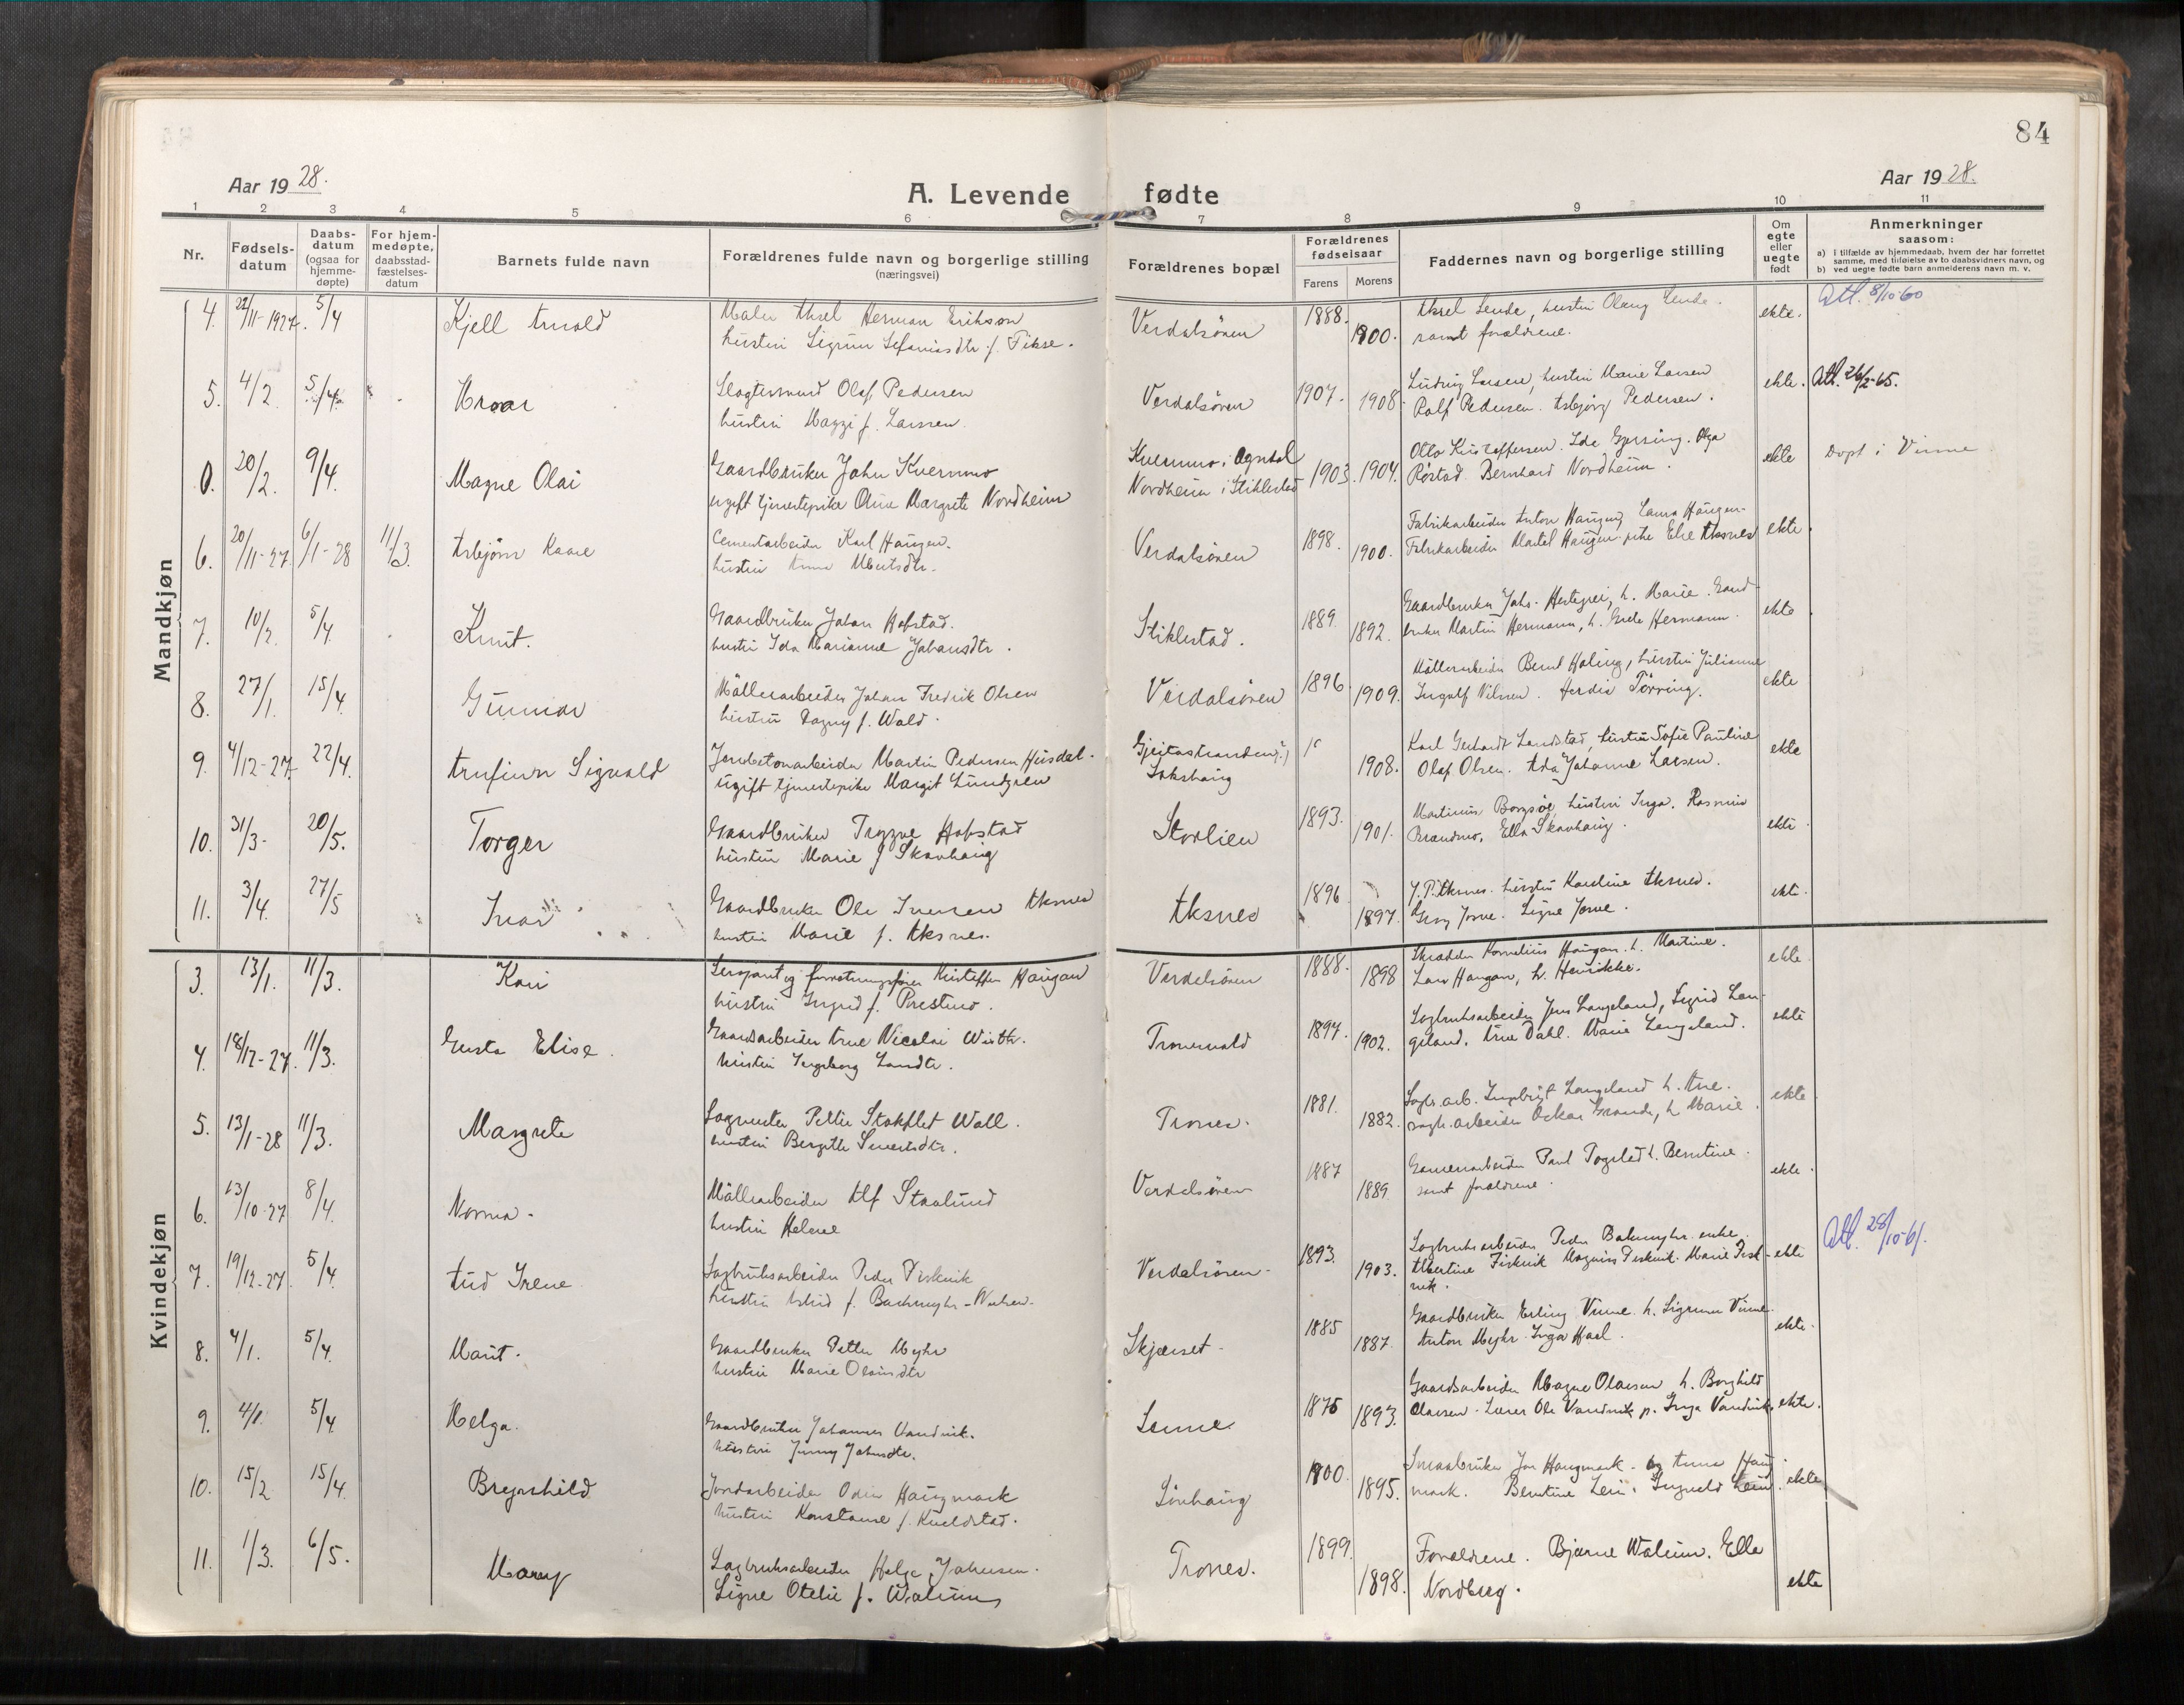 84
Aar 19 28.
A. Levende fødte
Aar 19 28.
1 2 3 4 5 6 7 8 9 10 11
Nr.
Fødsels-
datum
Daabs-
datum
(ogsaa for
hjemme-
døpte)
For hjem-
medøpte,
daabsstad-
fæstelses-
datum
Barnets fulde navn
Forældrenes fulde navn og borgerlige stilling
(næringsvei)
Forældrenes bopæl
Forældrenes
fødselsaar
Farens Morens
Faddernes navn og borgerlige stilling
Om
egte
eller
uegte
født
Anmerkninger
saasom:
a) i tilfælde av hjemmedaab, hvem der har forrettet
samme, med tilføielse av to daabsvidners navn, og
b) ved uegte fødte barn anmelderens navn m. v.
Mandkjøn
4. 22/11-1927. 5/4 Kjell Arnold
Maler Aksel Herman Erikson
hustru Sigrun Stefaniasdtr. f. Fikse.
Verdalsören 1888. 1900.
Aksel Lende, hustru Olaug Lende.
samt forældrene.
ekte. Att. 8/10-60
5. 4/2 5/4 Hroar
Slagtersvend Olaf Pedersen
hustru Maggi f. Larsen
Verdalsören 1907. 1908.
Ludvig Larsen, hustru Marie Larsen
Rolf Pedersen. Asbjørg Pedersen.
ekte. Att. 26/2-65.
0. 20/2. 9/4. Magne Olai
Gaardbruker John Kvernmo
ugift tjenestepike Oline Margrete Nordheim
Kvernmo i Ogndal
Nordheim i Stiklestad
1903. 1904.
Otto Kristoffersen. Ida Gjersing. Olga
Röstad. Bernhard Nordheim.
ekte Døpt i Vinne
6. 20/11-27. 6/1-28 11/3. Asbjörn Kaare
Cementarbeider Karl Haugen.
hustru Anna
Verdalsören 1898. 1900.
Fabrikarbeider Anton Haugen, Laura Haugen.
Fabrikarbeider Martel Haugen pike Else Aksnes
ekte.
7. 10/2. 5/4. Knut.
Gaardbruker Johan Hofstad.
hustru Ida Marianne Johansdtr.
Stiklestad. 1889. 1892.
Gaardbruker Johs. h. Marie. Gaard-
bruker Martin Hermann, h. Grete Hermann.
ekte
8. 27/1. 15/4. Gunnar
Möllerarbeider Johan Fredrik Olsen
hustru Dagny f. Wold.
Verdalsören 1896. 1909.
Möllerarbeider Bernt Holing, hustru Julianne
Ingolf Nilsen. Herdis Törring.
ekte
9. 4/12-27 22/4. Arnfinn Sigvald
Jernbetonarbeider Martin Pedersen Husdal.
ugift tjenestepike Margit Lundgren
Gjeitastranden(?)
1908.
Karl Gerhardt Landstad, hustru Sofie Pauline
Olaf Olsen. Ada Johanne Larsen.
ekte
10. 31/3- 20/5. Torger
Gaardbruker Trygve Hofstad
hustru Marie f Skavhaug
Storlien 1893. 1901.
Martinus Borgsöe, hustru Inga. Rasmus
Brandmo, Ella Skavhaug.
ekte
11. 3/4. 27/5 Ivar
Gaardbruker Ole Iversen Aksnes
hustru Marie f. Aksnes.
Aksnes 1896 1897.
J. P. Aksnes. hustru Karoline Aksnes.
Georg Josve. Signe Josve.
ekte.
Kvindekjøn
3. 13/1. 11/3. Kari
Sersjant og forretningsfører Kristoffer Haugan
hustru Ingrid f. Prestmo.
Verdalsören 1888. 1898
Skrædder Kornelius Haugan. h. Martine.
Lars Haugan, h. Henrikke.
ekte
4. 18/12-27. 11/3. Gusta Elise.
Gaardsarbeider Arne Nicolai Wirth.
hustru Ingeborg Larsdtr.
Tronesvald 1897. 1902.
Sagbruksarbeider Jens Langeland, Sigrid Lan-
geland. Arne Dahl. Marie Langeland.
ekte
5. 13/1-28 11/3. Margrete
Sagmester Petter Stokflet Wall.
hustru Bergitte Sivertsdtr.
Trones. 1881. 1882.
Sagbr. arb. Ingebrigt Langeland h. Ane.
sagbr. arbeider Oskar Grande, h Marie.
ekte
6. 23/10-27 8/4. Norma.
Möllerarbeider Alf Staalund
hustru Helene
Verdalsören 1887 1889.
Paul h. Berntine.
samt forældrene.
ekte.
7. 19/12-27. 5/4. Aud Irene
Sagbruksarbeider Peder Fiskvik
hustru Astrid f. Bakmyhr
Verdalsören. 1893. 1903.
Sagbruksarbeider Peder Bakmyhr. enke
Albertine Fiskvik Magnus Fiskvik. Marie Fisk-
vik.
ekte Att. 28/10-61.
8. 4/1. 5/4. Marit.
Gaardbruker Petter Myhr
hustru Marie Olausdtr
Skjærset. 1885 1887.
Gaardbruker Erling Vinne. h. Sigrunn Vinne.
Anton Myhr. Inga Hael.
ekte.
9. 4/1. 5/4. Helga.
Gaardbruker Johannes Vandvik.
hustru Jenny Johnsdtr.
1875 1893.
Gaardsarbeider Magne Olausen h. Borghild
Olausen. Lærer Ole Vandvik p. Inga Vandvik.
ekte.
10. 15/2 15/4. Brynhild
Jordarbeider Odin Haugmark
hustru Konstanse f. Kvelstad.
Lönhaug 1900. 1895.
Smaabruker Jon Haugmark. og Anna Haug-
mark. Berntine Lein. Ingvald Lein.
ekte
11. 1/3. 6/5. Mary
Sagbruksarbeider Helge Johnsen.
Signe Otelie f. Walum
Trones. 1899. 1898.
Forældrene. Bjarne Walum. Ella
Nordberg.
ekte